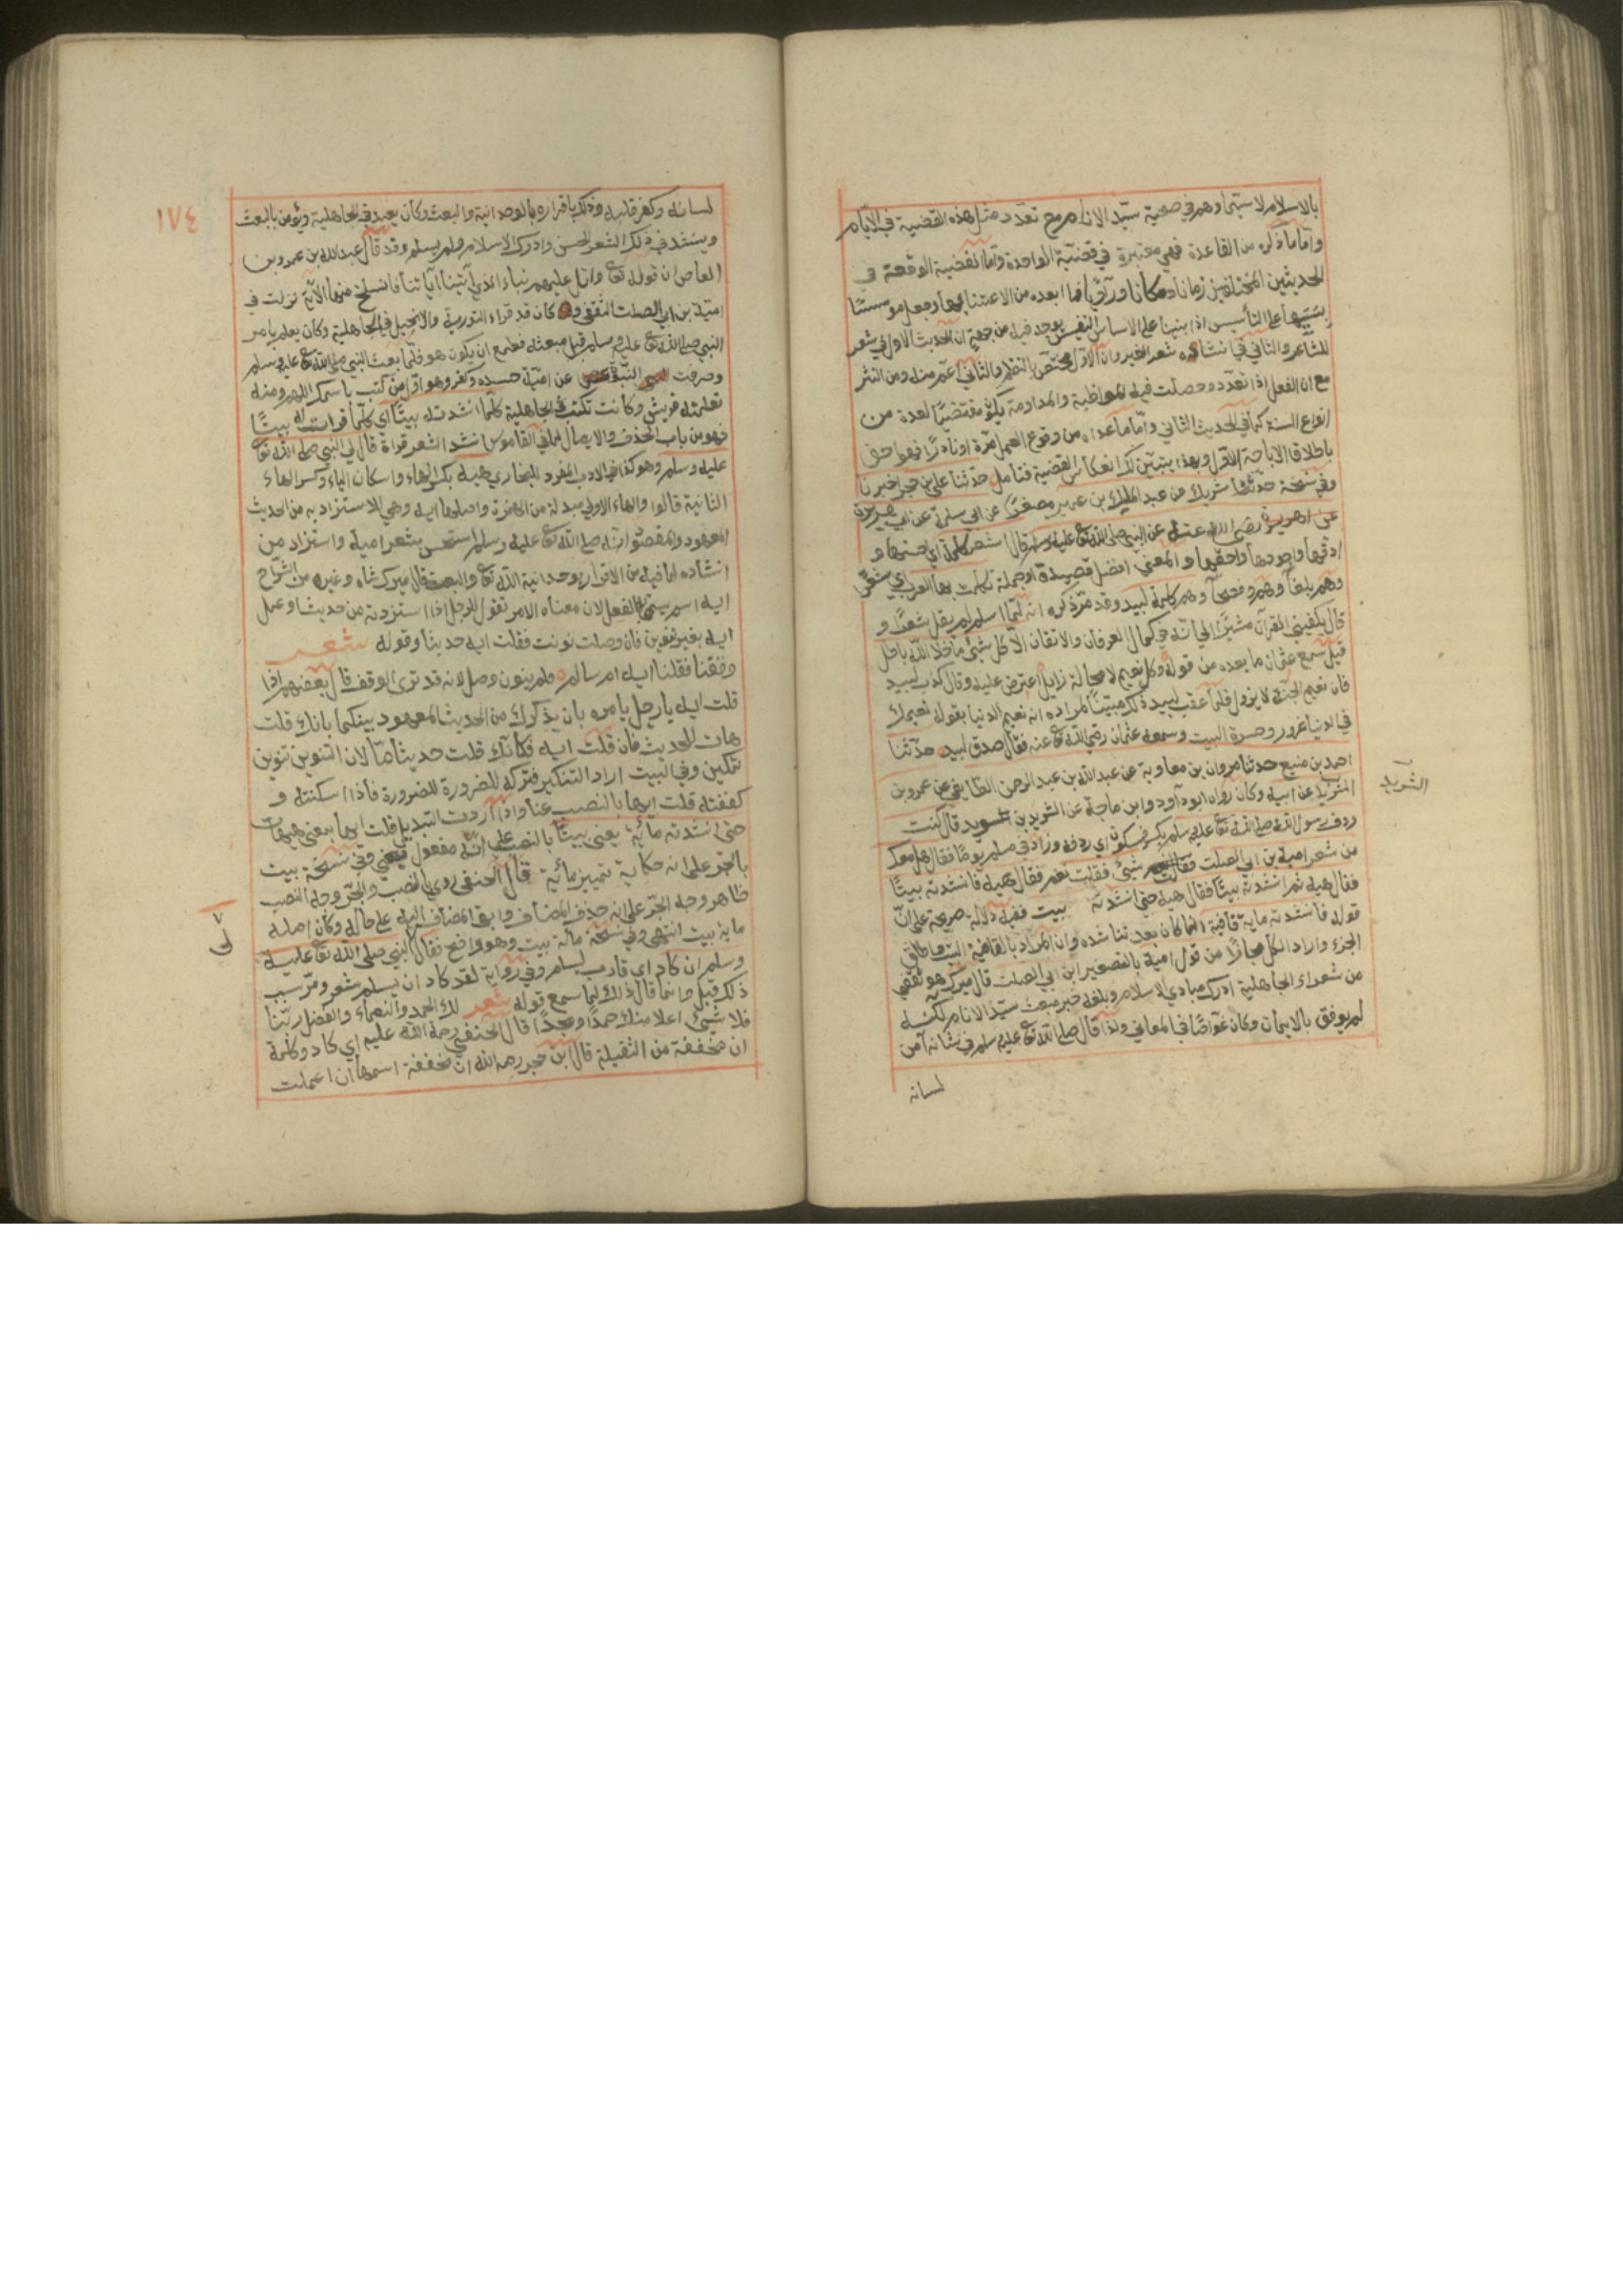 بالاسلام لا سيما وهم في صحبة سيد الانام مع تعدد مثل هذه القضية في الايام
واما ما ذكره من القاعدة فهي معتبرة في قضية الواحدة واما القضية الوقعة في
الحديثين المختلفين زمانا ومكانا وراويا فما ابعده من الاعتناء بها وجعل مؤسسا
للشاعر والثاني في انشاده شعر الغير وان الاول مختص بالنظم والثاني اعم منه ومن النثر
مع ان الفعل اذا تعدد وحصلت فيه المواظبة والمداومة يكون مقتضيا لعده من
انواع السنة كما في الحديث الثاني واما ما عداه من وقوع العمل مرة او نادرا فهو احق
باطلاق الاباحة الاول وبهذا يتبين لك انعكاس القضية فتامل حدثنا علي بن حجر اخبرنا
وفي نسخة حدثنا شريك عن عبد الملك بن عمير مصغرا عن ابي سلمة عن ابي هريرة
عن النبي صلى الله تع عليه وسلم قال اشعر كلمة اي احسنها و
ادقها واجودها واحقها والمعنى افضل قصيدة او جملة تكلمت بها العرب اي شعرا
وهم بلغآ وهم وفصحآ وهم كلمة لبيد وقد مر ذكره انه لما اسلم لم يقل شعرا و
قال يكفيني القرآن مشيرا الى انه في كمال العرفان والاتقان الا كل شئ ما خلا الله باطل
قيل سمع عثمان ما بعده من قوله وكل نعيم لا محالة زايل اعترض عليه وقال كذب لبيد
فان نعيم الجنة لا يزول فلما عقب لبيد ذلك مبينا لمراده انه نعيم الدنيا بقوله نعيمك
في الدنيا غرور وحسرة البيت وسمعه عثمان رضي الله تع عنه فقال صدق لبيد حدثنا
احمد بن منيع حدثنا مروان بن معاوية عن عبد الله بن عبد الرحمن الطايفي عن عمرو بن
الشريد عن ابيه وكان رواه ابو داود وابن ماجة عن الشريد بن السويد قال كنت
الشريد
ردف رسول الله صلى الله تع عليه وسلم بكسر فسكون اي ردفه وزاد في مسلم يوما فقال هل معك
من شعر امية بن ابي الصلت شئ فقلت نعم فقال هيه فانشدته بيتا
فقال هيه ثم انشدته بيتا فقال هيه حتى انشدته بيت ففيه دلالة صريحة على ان
قوله فانشدته ماية قافية انما كان بعد تناشده وان المراد بالقافية البيت واطلاق
الجزء واراد الكل مجازا من قول امية بالتصغير ابن ابي الصلت قال ميرك هو ثقفي
من شعراء الجاهلية ادرك مبادي الاسلام وبلغه خبر مبعث سيد الانام لكنه
لم يوفق بالايمان وكان غواصا في المعاني ولذا قال صلى الله تع عليه وسلم في شانه آمن
لسانه
١٧٤
لسانه وكفر قلبه وذلك باقراره بالوحدانية والبعث وكان يتعبد في الجاهلية ويؤمن بالبعث
وينشد في ذلك الشعر الحسن وادرك الاسلام فلم يسلم وقد قال عبد الله بن عمرو بن
العاص ان قوله تع واتل عليهم نباء الذي آتيناه آياتنا فانسلخ منها الآية نزلت في
امية بن ابي الصلت الثقفي وكان قد قراء التورية والانجيل في الجاهلية وكان يعلم بامر
النبي صلى الله تع عليه وسلم قبل مبعثه فطمع ان يكون هو فلما بعث النبي صلى الله تع عليه وسلم
وصرفت النبوة عن امية حسده وكفر وهو اول من كتب باسمك اللهم ومنه
تعلمته قريش وكانت تكتب في الجاهلية كلما انشدته بيتا اي كلما قرات له بيتا
فهو من باب الحذف والايصال لما في القاموس انشد الشعر قراة قال لي النبي صلى الله تع
عليه وسلم وهو كذا في الادب المفرد للبخاري هيه بكسر الهاء واسكان الياء وكسر الهاء
الثانية قالوا والهاء الاولى مبدلة من الهمزة واصلها ايه وهي للاستزاد به من الحديث
المعهود والمقصود انه صلى الله تع عليه وسلم استحسن شعر امية واستزاد من
انشاده لما فيه من الاقرار بوحدانية الله تع والبعث قال ميرك شاه وغيره من الشراح
ايه اسم يسمى به الفعل لان معناه الامر تقول للرجل اذا استزدته من حديث او عمل
ايه بغير تنوين فان وصلت نونت فقلت ايه حدينا وقوله شعر
وقفنا فقلنا ايه ام سالم فلم ينون وصل لانه قد ترى الوقف قال بعضهم اذا
قلت ايه يا رجل يامره بان يذكرك من الحديث المعهود بينكما بانك قلت
هات الحديث فان قلت ايه فكانك قلت حديثا ما لان التنوين تنوين
تمكين وفي البيت اراد التنكير فتركه للضرورة للضرورة فاذا اسكنته و
كففته قلت ايها بالنصب عنا واذا اردت التبديل قلت ايها بمعنى هيهات
حتى انشدته مائة يعني بيتا بالنصب على انه مفعول يعني وفي نسخة بيت
بالجر على انه حكاية تمييز مائية قال الحنفي روي بالنصب والجر وجه النصب
ظاهر وجه الجر على انه حذف المضاف وابقى المضاف اليه على حاله وكان اصله
ماية بيت انتهى وفي نسخة مائة بيت وهو واضح فقال النبي صلى الله تع عليه
وسلم ان كاد اي قارب ليسلم وفي رواية لقد كاد ان يسلم شعر ومر سبب
ذلك قيل وانما قال ذلك لما سمع قوله شعر لك الحمد والنعماء والفضل ربنا
فلا شئ اعلا منك حمدا ومجدا قال الحنفي رحمة الله عليه اي كاد وكلمة
ان مخففة من الثقيلة قال ابن حجر رحمه الله ان مخففة اسمها ان اعملت